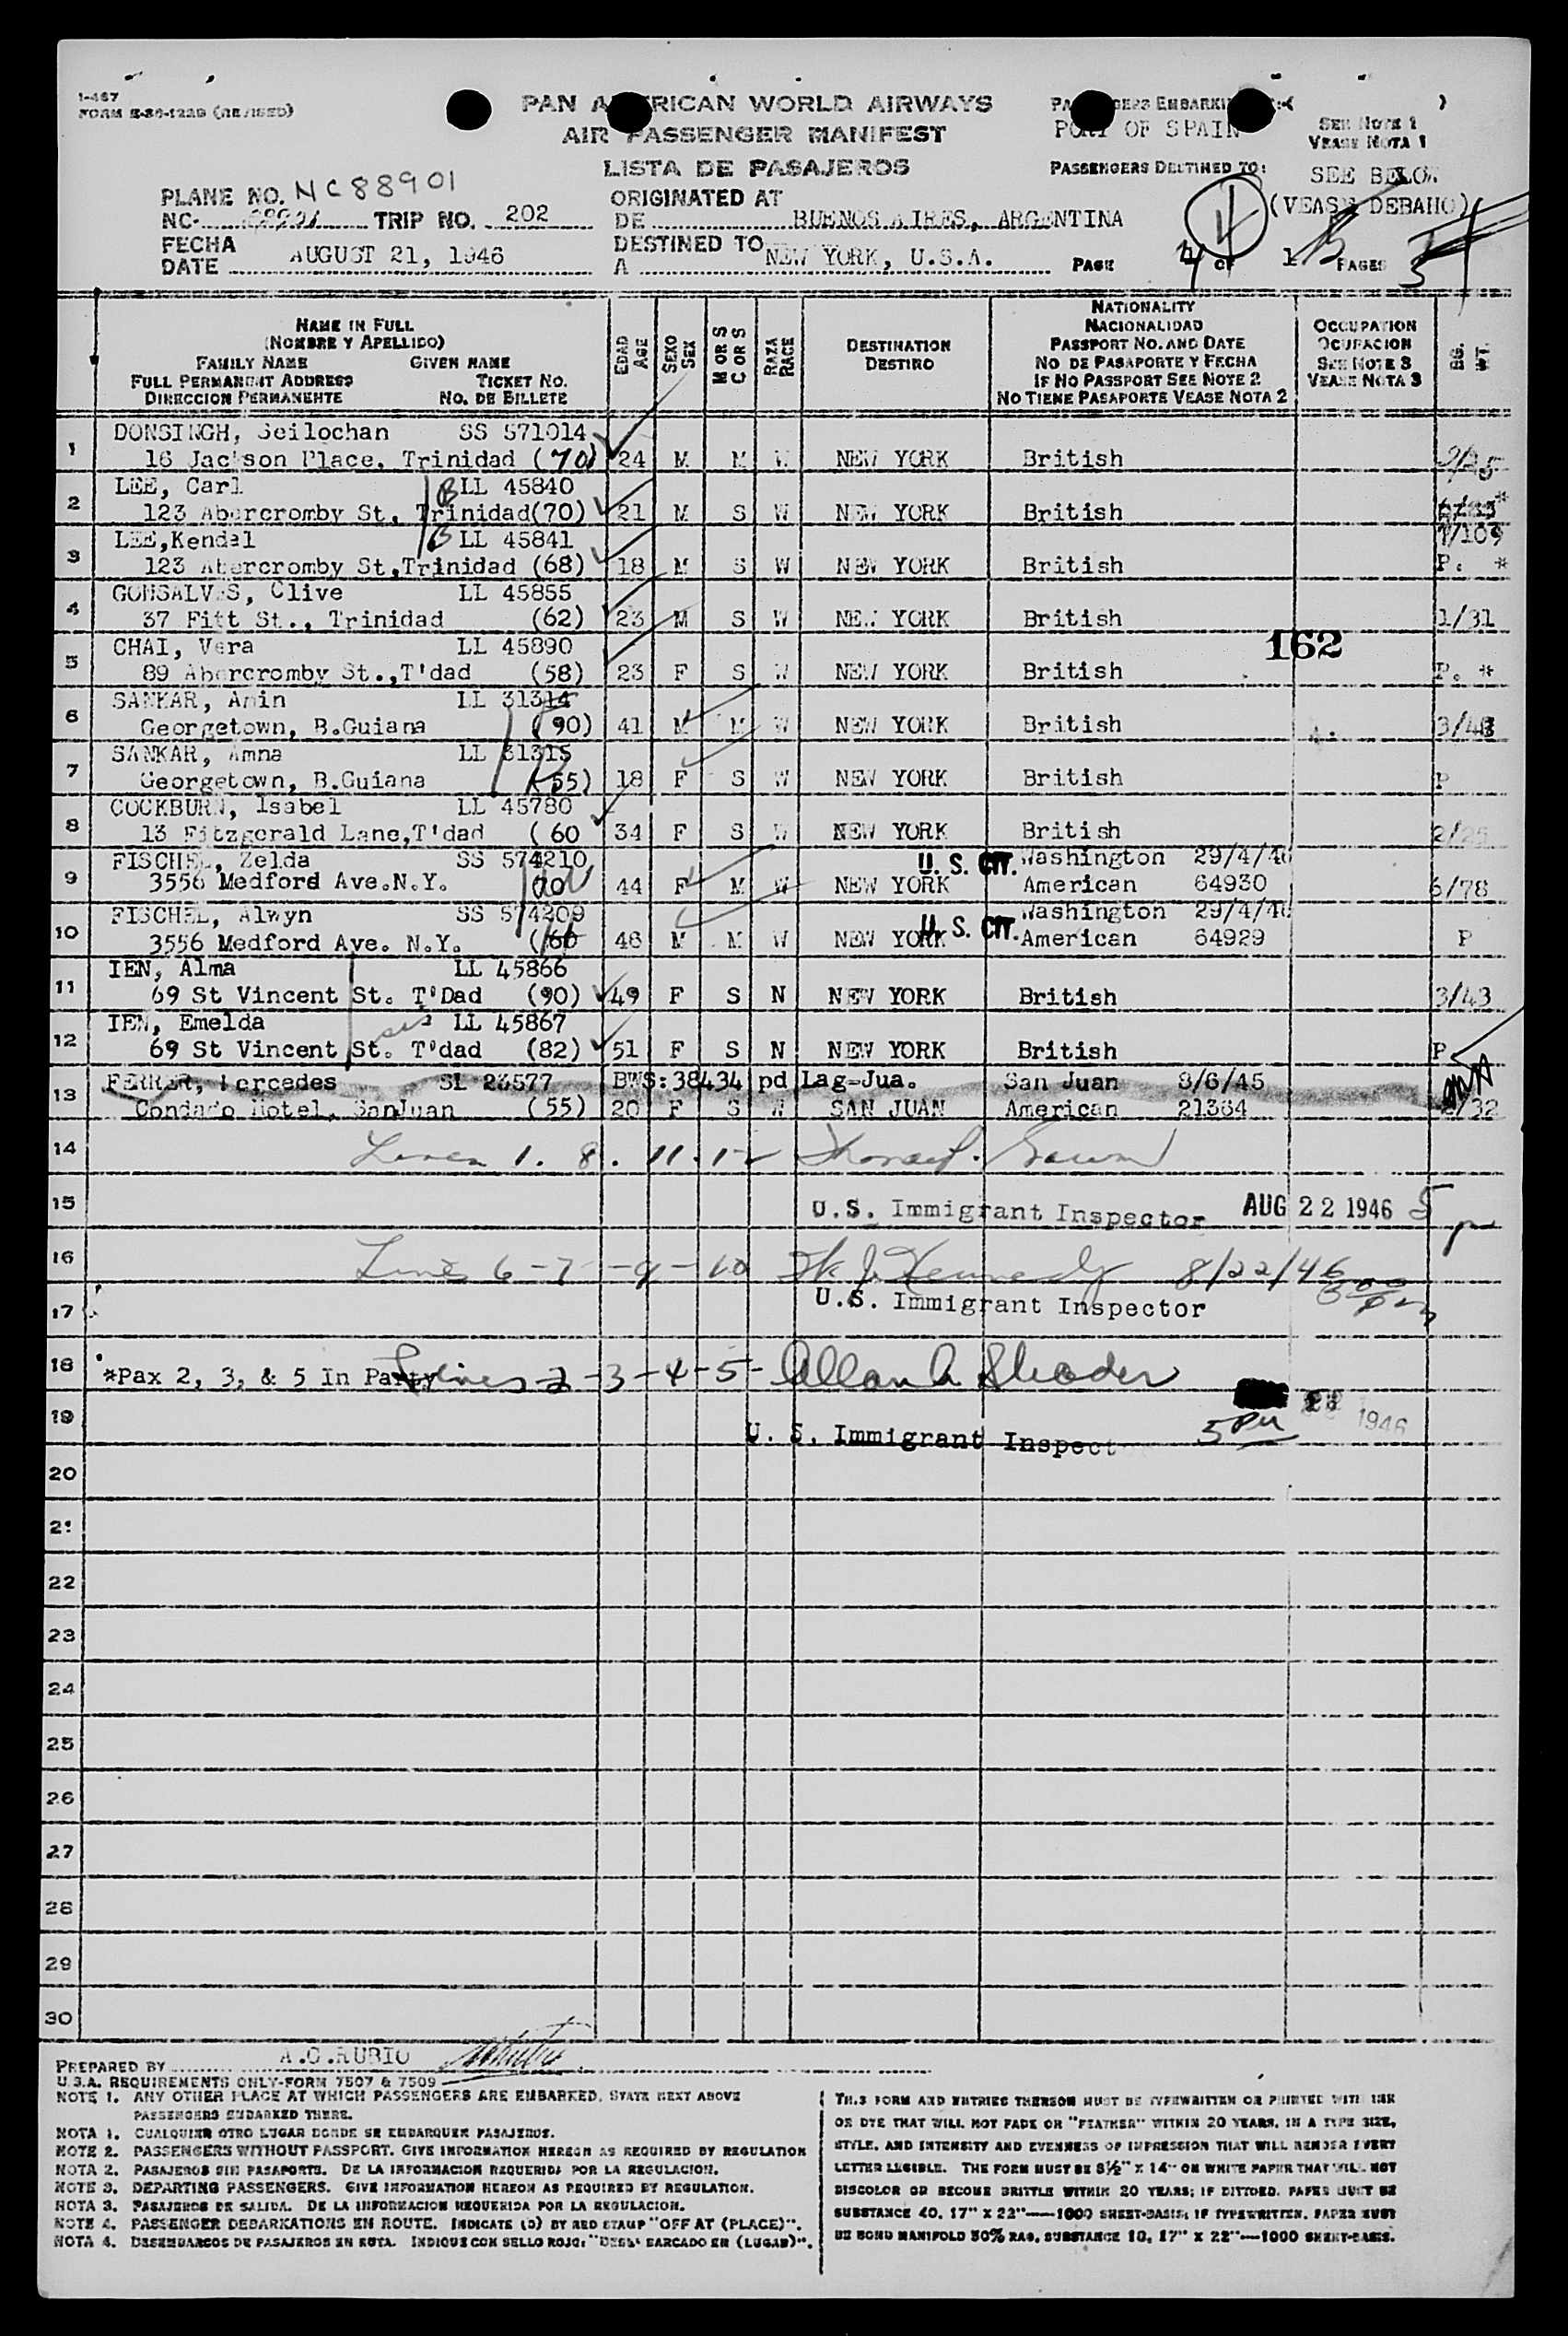 I-467
FORM E-86-122B (REVISED)
PAN AMERICAN WORLD AIRWAYS
AIR PASSENGER MANIFEST
LISTA DE PASAJEROS
PASSENGERS EMBARKING
PORT OF SPAIN
SEE NOTE 1
VEASE NOTA 1
PASSENGERS DESTINED TO:
SEE BELOW
(VEASE DEBAHO)
PLANE NO. NC88901
NC- TRIP NO. 202
ORIGINATED AT
DE BUENOS AIRES, ARGENTINA
FECHA
DATE AUGUST 21, 1946
DESTINED TO
A NEW YORK, U.S.A.
PAGE 4 OF PAGES
4
NAME IN FULL
(NOMBRE Y APELLIDO)
FAMILY NAME GIVEN NAME
FULL PERMANENT ADDRESS TICKET NO.
DIRECCION PERMANENTE NO. DE BILLETE
EDAD
AGE
SEXO
SEX
M OR S
C OR S
RAZA
RACE
DESTINATION
DESTINO
NATIONALITY
NACIONALIDAD
PASSPORT NO. AND DATE
NO DE PASAPORTE Y FECHA
IF NO PASSPORT SEE NOTE 2
NO TIENE PASAPORTE VEASE NOTA 2
OCCUPATION
OCUPACION
SEE NOTE 3
VEASE NOTA 3
BG.
WT.
1 DONSINGH, Seilochan SS 571014
16 Jackson Place, Trinidad (70) 24 M M W NEW YORK British
2 LEE, Carl B LL 45840
123 Abercromby St, Trinidad(70) 21 M S W NEW YORK British *
7/109
3 LEE,Kendal B LL 45841
123 Abercromby St,Trinidad (68) 18 M S W NEW YORK British P. *
4 GONSALVES, Clive LL 45855
37 Fitt St., Trinidad (62) 23 M S W NEW YORK British 1/31
162
5 CHAI, Vera LL 45890
89 Abercromby St.,T'dad (58) 23 F S W NEW YORK British P. *
6 SANKAR, Amin LL 31314
Georgetown, B.Guiana (90) 41 M M W NEW YORK British
7 SANKAR, Amna LL 31315
Georgetown, B.Guiana (55) 18 F S W NEW YORK British P
8 COCKBURN, Isabel LL 45780
13 Fitzgerald Lane,T'dad (60 34 F S W NEW YORK British 2/25
9 FISCHEL, Zelda SS 574210 U. S. CIT. Washington 29/4/46
3556 Medford Ave.N.Y. 44 F M W NEW YORK American 64930 6/78
10 FISCHEL, Alwyn SS 574209 U. S. CIT. Washington 29/4/46
3556 Medford Ave. N.Y. 46 M M W NEW YORK American 64929 P
11 IEN, Alma LL 45866
69 St Vincent St. T'Dad (90) 49 F S N NEW YORK British 3/43
12 IEN, Emelda sis LL 45867
69 St Vincent St. T'dad (82) 51 F S N NEW YORK British P
13 FERRER, Mercedes SL 23577 BWS:38434 pd Lag-Jua. San Juan 8/6/45
Condado Hotel, SanJuan (55) 20 F S W SAN JUAN American 21364 /32
14 Lines 1. 8. 11. 12
15 U.S. Immigrant Inspector AUG 22 1946 5 p
16 Lines 6-7-9-10 Kennedy 8/22/46
17 U.S. Immigrant Inspector
18 *Pax 2, 3, & 5 In Party Lines 2-3-4-5- Allan A. Shader
19 U. S. Immigrant Inspect 5PM 1946
20
21
22
23
24
25
26
27
28
29
30
PREPARED BY A.O.RUBIO
U.S.A. REQUIREMENTS ONLY-FORM 7507 & 7509
NOTE 1. ANY OTHER PLACE AT WHICH PASSENGERS ARE EMBARKED, STATE NEXT ABOVE
PASSENGERS EMBARKED THERE.
NOTA 1. CUALQUIER OTRO LUGAR DONDE SE EMBARQUEN PASAJEROS.
NOTE 2. PASSENGERS WITHOUT PASSPORT. GIVE INFORMATION HEREON AS REQUIRED BY REGULATION
NOTA 2. PASAJEROS SIN PASAPORTE. DE LA INFORMACION REQUERIDA POR LA REGULACION.
NOTE 3. DEPARTING PASSENGERS. GIVE INFORMATION HEREON AS REQUIRED BY REGULATION.
NOTA 3. PASAJEROS DE SALIDA. DE LA INFORMACION REQUERIDA POR LA REGULACION.
NOTE 4. PASSENGER DEBARKATIONS EN ROUTE. INDICATE (D) BY RED STAMP "OFF AT (PLACE)".
NOTA 4. DESEMBARCOS DE PASAJEROS EN RUTA. INDIQUE CON SELLO ROJO: "DESEMBARCADO EN (LUGAR)".
THIS FORM AND ENTRIES THEREON MUST BE TYPEWRITTEN OR PRINTED WITH INK
OR DYE THAT WILL NOT FADE OR "FEATHER" WITHIN 20 YEARS, IN A TYPE SIZE,
STYLE, AND INTENSITY AND EVENNESS OF IMPRESSION THAT WILL RENDER EVERY
LETTER LEGIBLE. THE FORM MUST BE 8½" X 14" ON WHITE PAPER THAT WILL NOT
DISCOLOR OR BECOME BRITTLE WITHIN 20 YEARS; IF DITTOED, PAPER MUST BE
SUBSTANCE 40, 17" X 22"—1000 SHEET-BASIS; IF TYPEWRITTEN, PAPER MUST
BE BOND MANIFOLD 50% RAG, SUBSTANCE 10, 17" X 22"—1000 SHEET-BASIS.